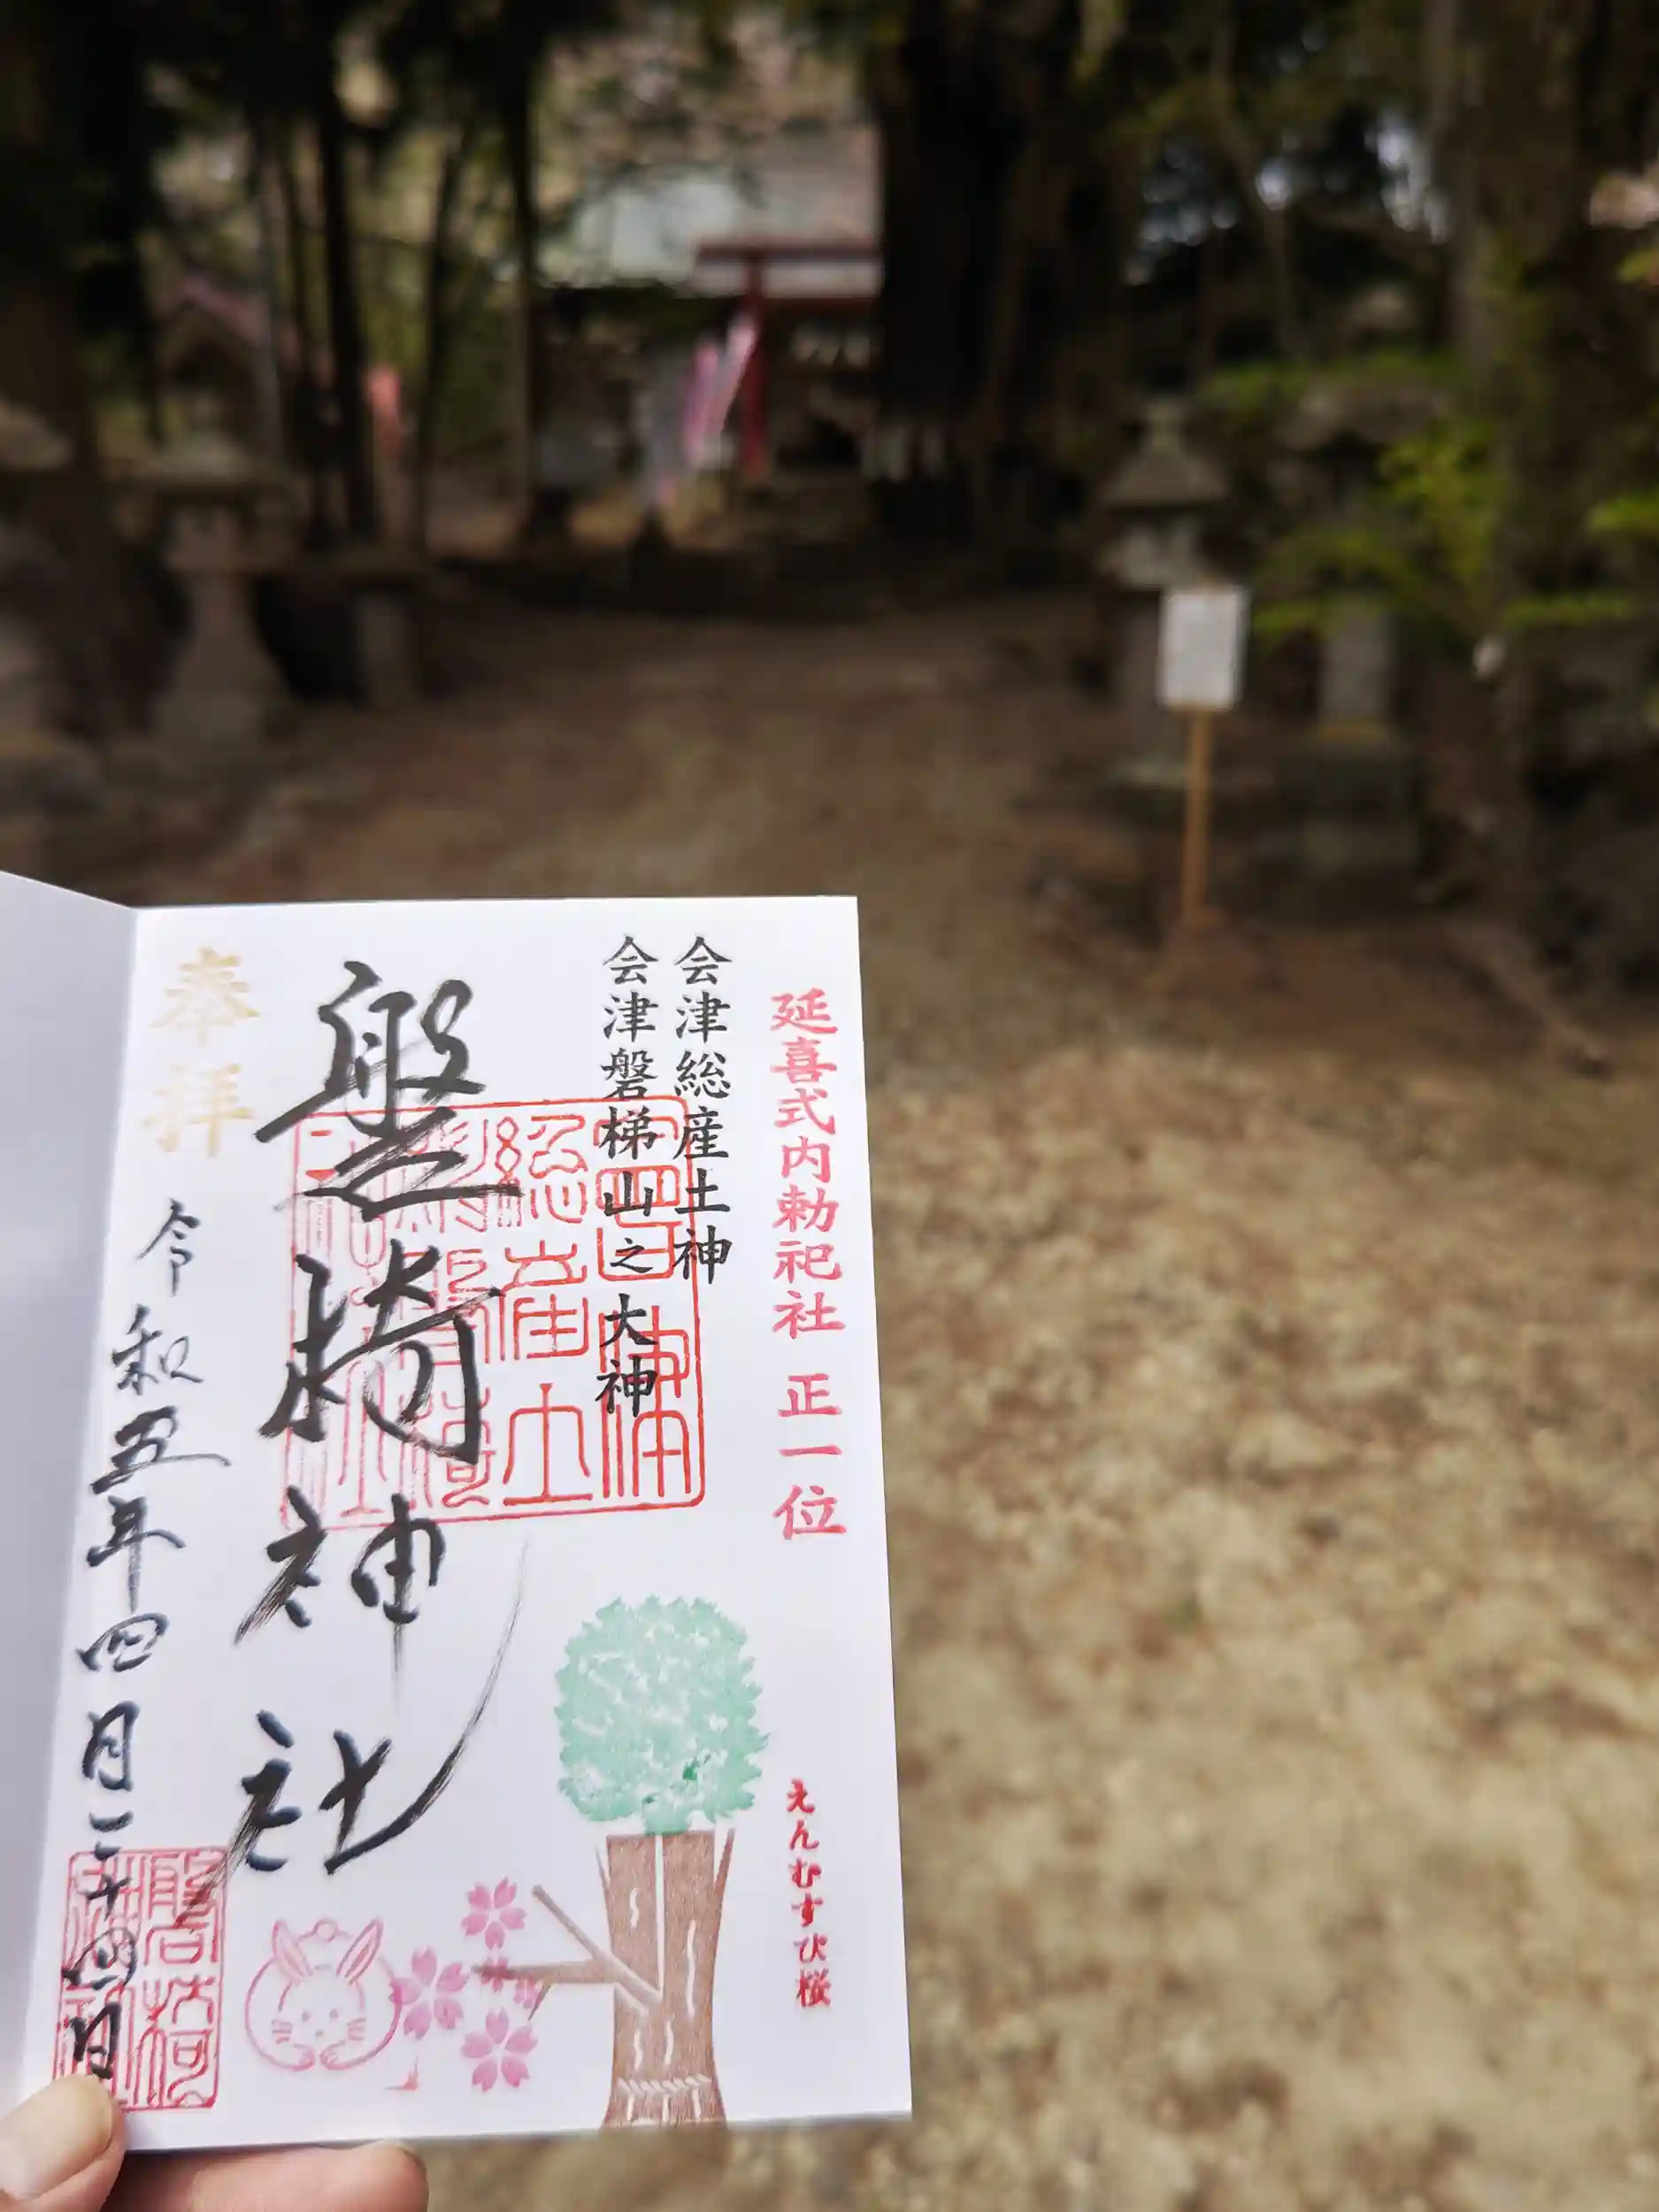 延喜式内勅祀社 正一位
会津総産土神
会津磐梯山之大神
盤椅神社
奉拝
令和五年四月二十四日
えんむすび桜